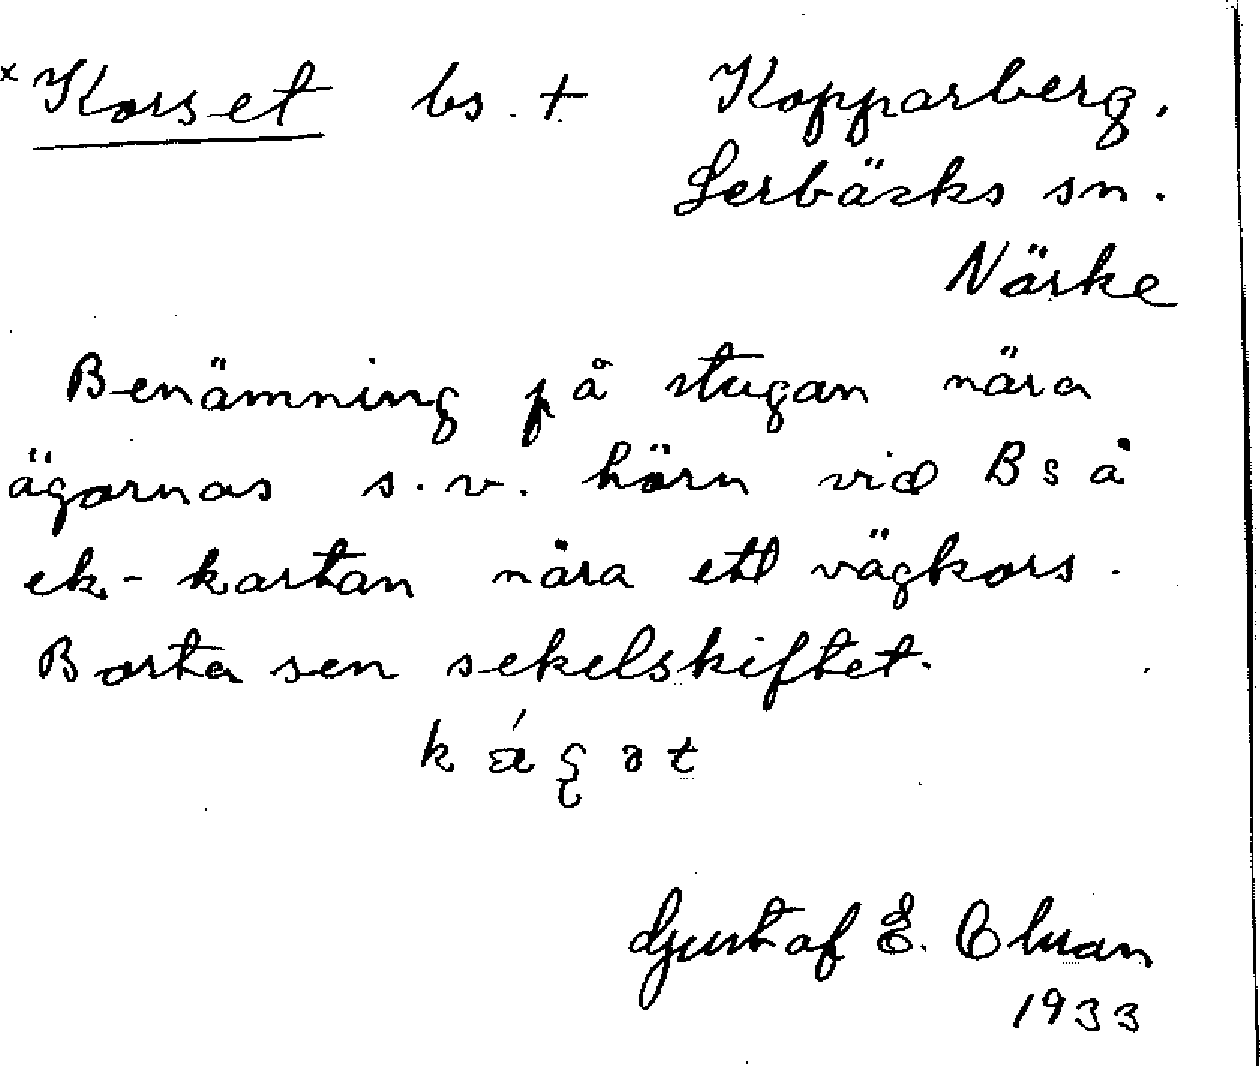 × Korset bs. + Kopparberg.
Lerbäcks sn.
Närke
Benämning på stugan nära
ägornas s.v. hörn vid B s å
ek-kartan nära ett vägkors.
Borta sen sekelskiftet.
Gustaf E.
1933